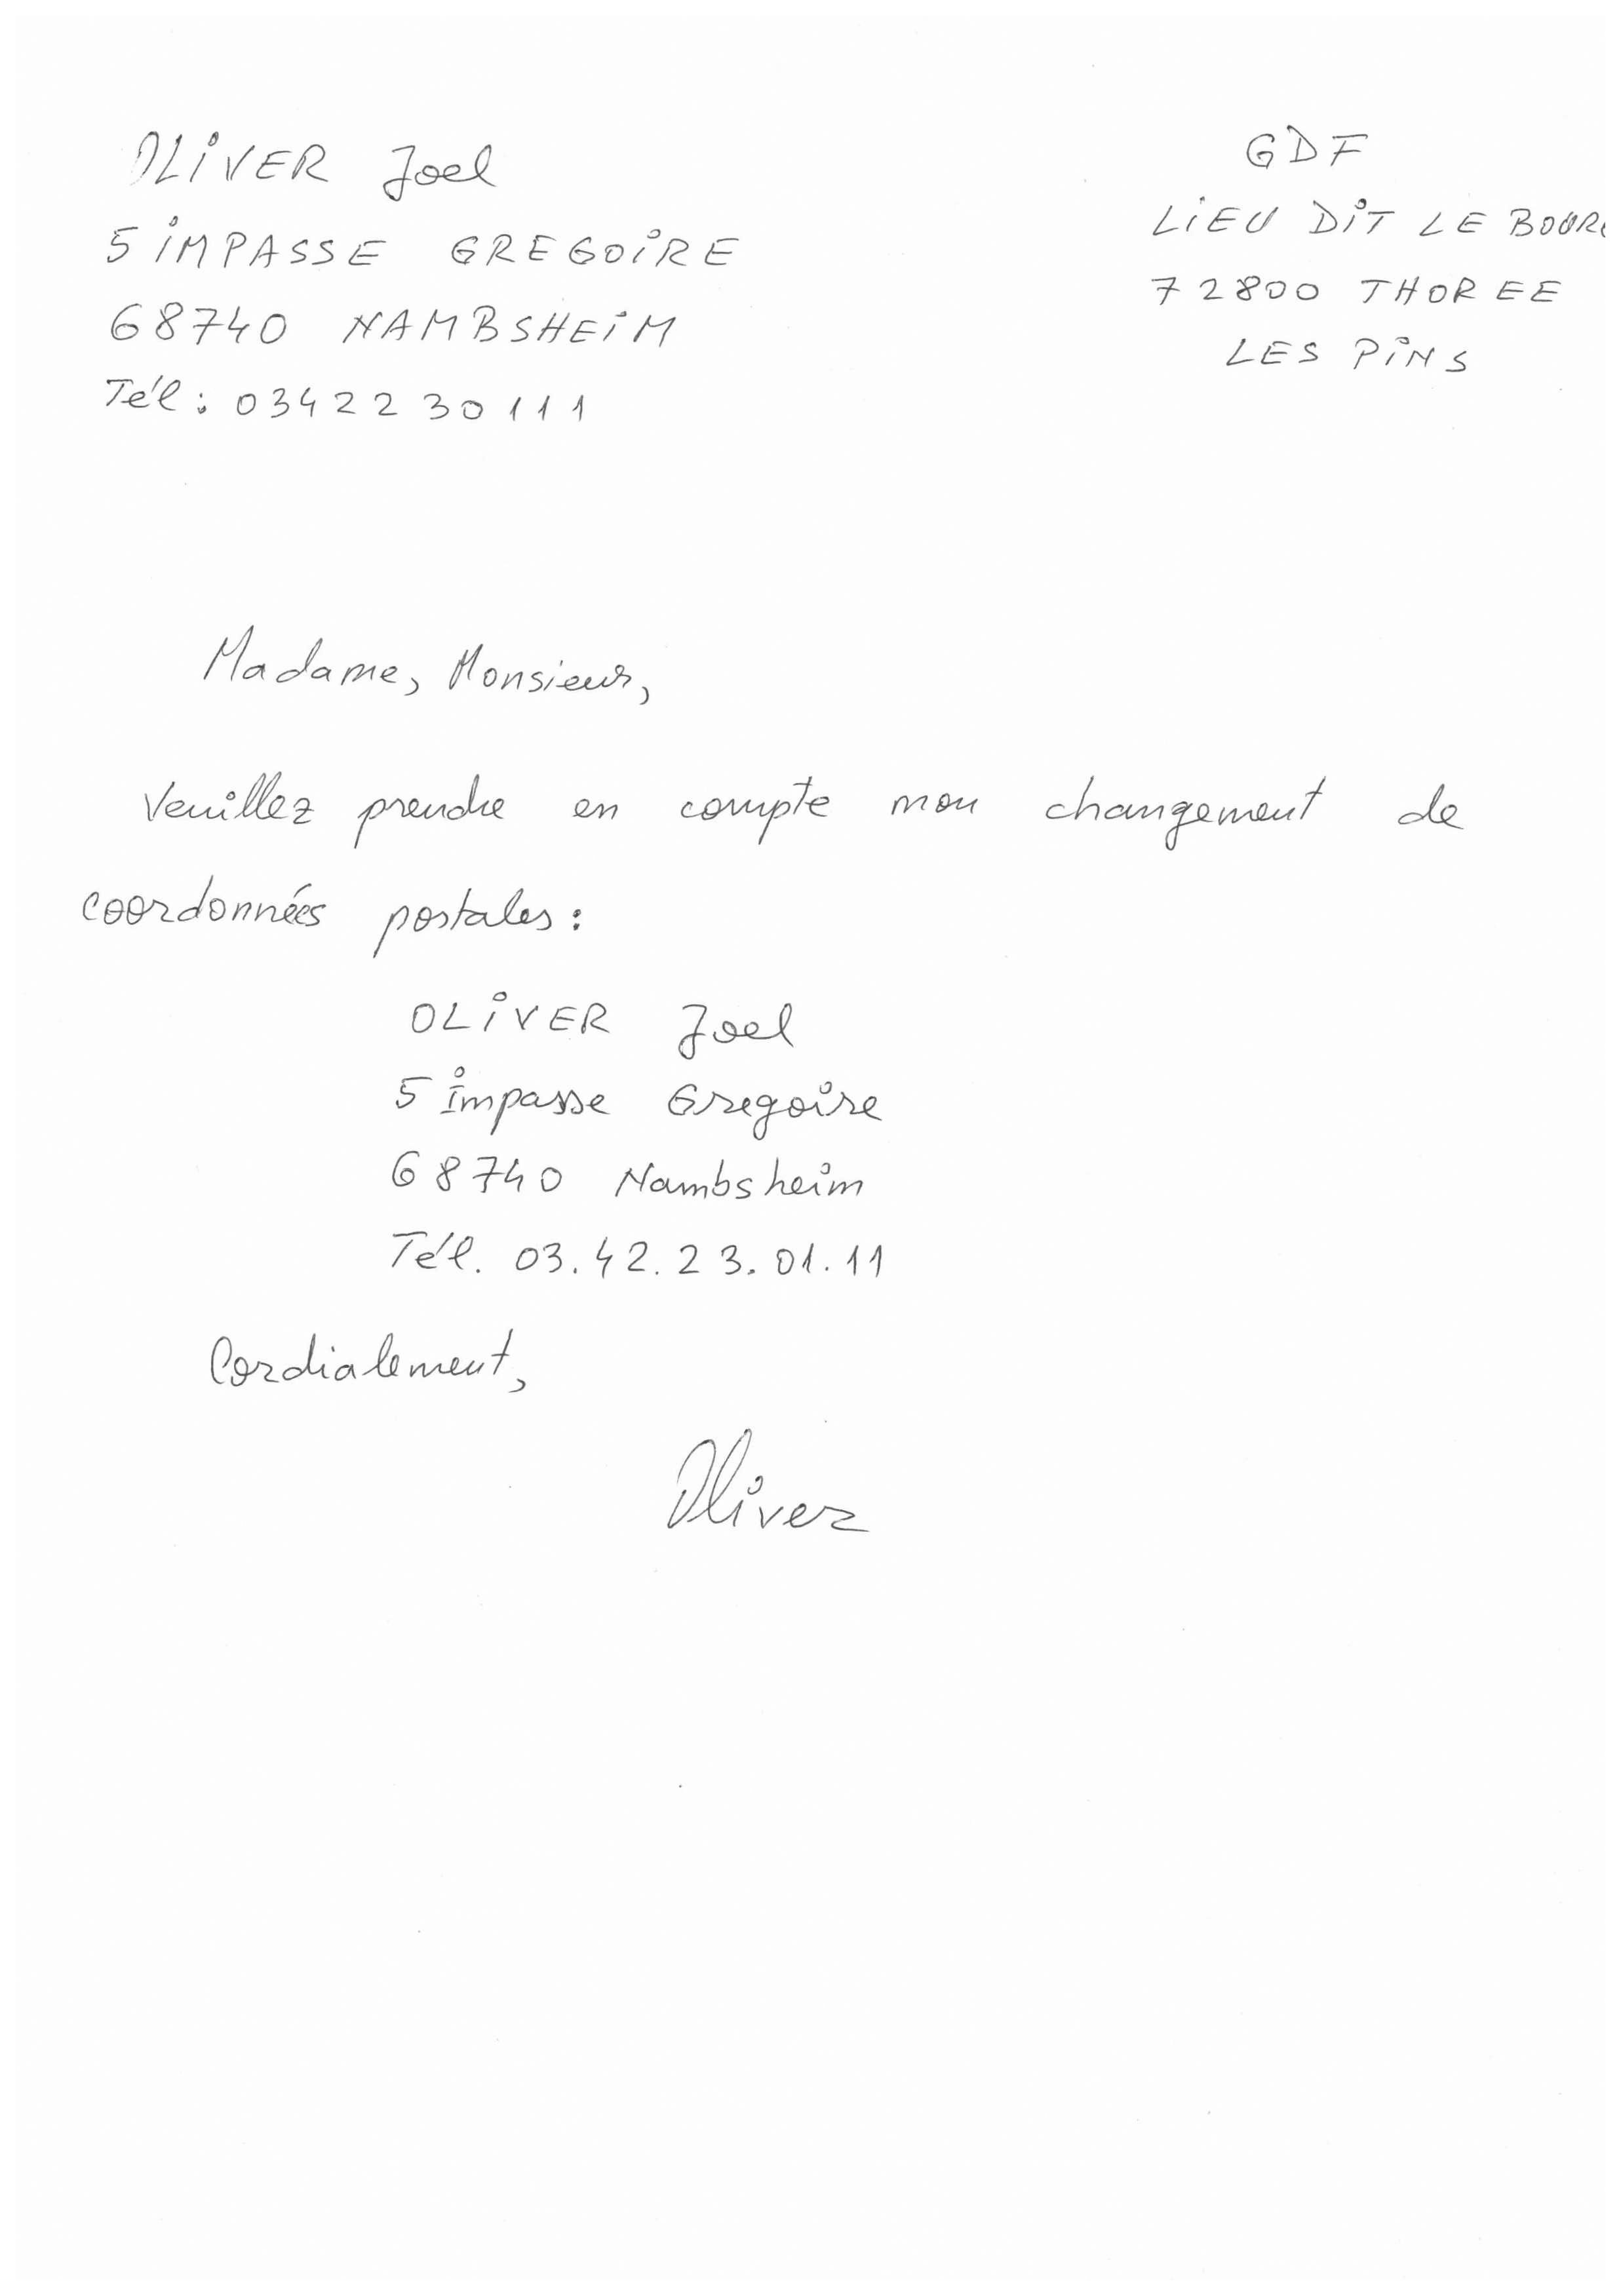 OLIVER Joel
5 IMPASSE GREGOIRE
68740 NAMBSHEIM
Tél : 0342230111
GDF
LIEU DIT LE
72800 THOREE
LES PINS
Madame, Monsieur,
Veuillez prendre en compte mon changement de
coordonnées postales :
OLIVER Joel
5 Impasse Gregoire
68740 Nambsheim
Tél. 03.42.23.01.11
Cordialement,
Oliver